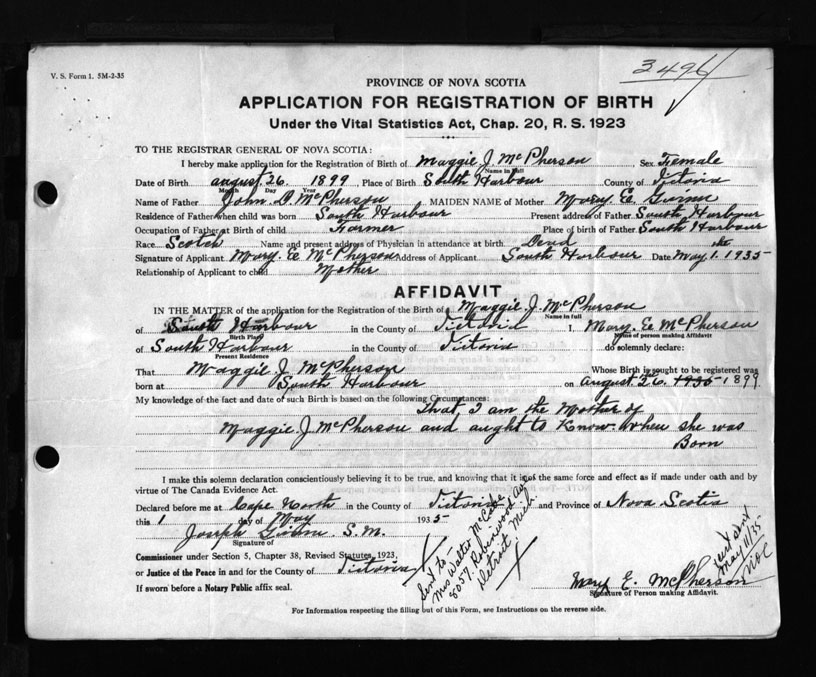 V. S. Form 1. 5M-2-35
3496
PROVINCE OF NOVA SCOTIA
APPLICATION FOR REGISTRATION OF BIRTH
Under the Vital Statistics Act, Chap. 20, R. S. 1923
TO THE REGISTRAR GENERAL OF NOVA SCOTIA:
I hereby make application for the Registration of Birth of Maggie J. McPherson Sex Female
Name in Full
Date of Birth august 26. 1899 Place of Birth South Harbour County of Victoria
Month Day Year
Name of Father John D. McPherson MAIDEN NAME of Mother Mary E.
Residence of Father when child was born South Harbour Present address of Father South Harbour
Occupation of Father at Birth of child Farmer Place of birth of Father South Harbour
Race Scotch Name and present address of Physician in attendance at birth Dead
Signature of Applicant Mary. E. McPherson Address of Applicant South Harbour Date May 1. st 1935
Relationship of Applicant to child Mother
AFFIDAVIT
IN THE MATTER of the application for the Registration of the Birth of a Maggie J. McPherson
Name in full
of South Harbour in the County of Victoria I, Mary. E. McPherson
Birth Place Name of person making Affidavit
of South Harbour in the County of Victoria do solemnly declare:
Present Residence
That Maggie J. McPherson Whose Birth is sought to be registered was
born at South Harbour on august 26. 1935 1899
My knowledge of the fact and date of such Birth is based on the following Circumstances:
That, I am the Mother of
Maggie. J. McPherson and aught to Know when she was
Born
I make this solemn declaration conscientiously believing it to be true, and knowing that it is of the same force and effect as if made under oath and by
virtue of The Canada Evidence Act.
Declared before me at Cape North in the County of Victoria and Province of Nova Scotia
this 1 day of May 1935
Joseph S. M.
Signature of
Commissioner under Section 5, Chapter 38, Revised Statutes, 1923,
or Justice of the Peace in and for the County of Victoria
If sworn before a Notary Public affix seal.
Sent to
Mrs Walter McCabe
8057. Ave
Detroit Mich.
Sent
May 11/35
Mary E. McPherson
Signature of Person making Affidavit.
For Information respecting the filling out of this Form, see Instructions on the reverse side.